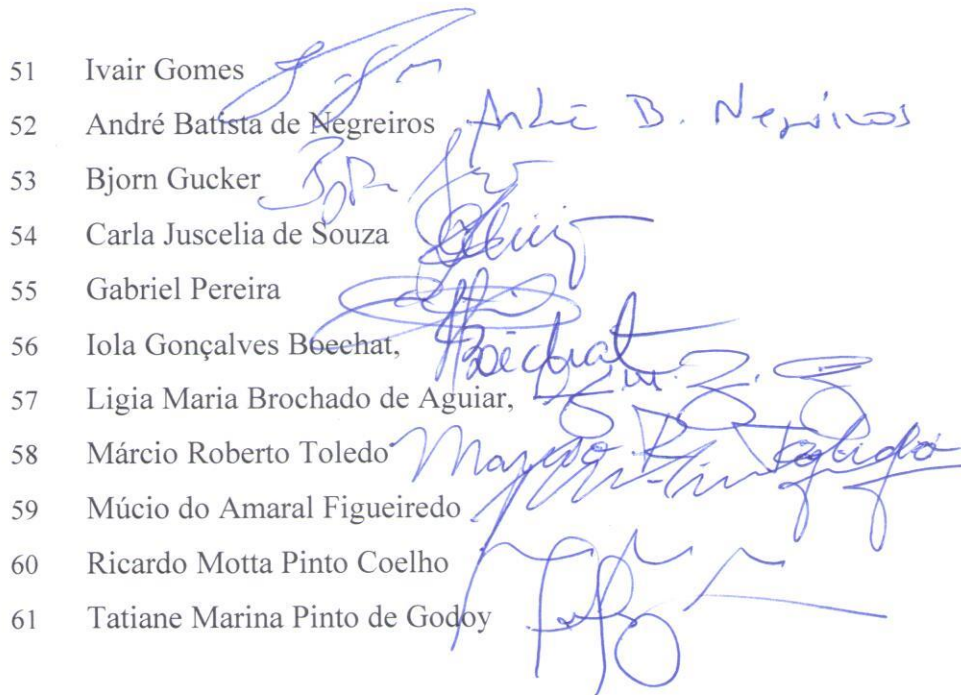 51 Ivair Gomes
52 André Batista de Negreiros André B. Negreiros
53 Bjorn Gucker
54 Carla Juscelia de Souza
55 Gabriel Pereira
56 Iola Gonçalves Boechat, Boechat
57 Ligia Maria Brochado de Aguiar,
58 Márcio Roberto Toledo Marcio R. Toledo
59 Múcio do Amaral Figueiredo
60 Ricardo Motta Pinto Coelho
61 Tatiane Marina Pinto de Godoy